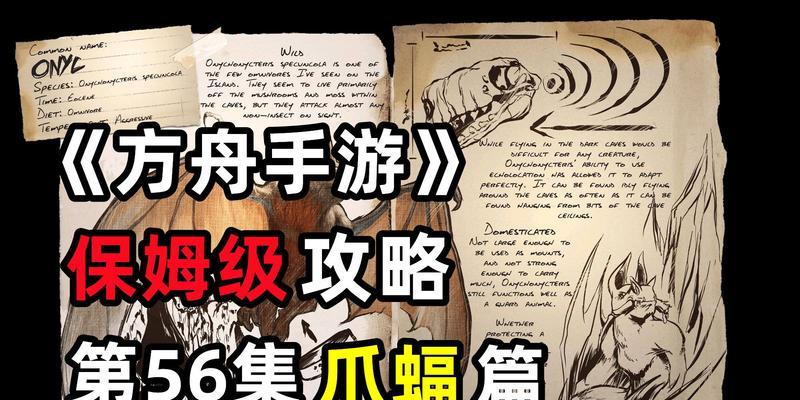 COMMON NAME:
ONYC
SPECIES: ONYCHONYCTERIS SPECUNCOLA
TIME: EOCENE
DIET: OMNIVORE
WILD
ONYCHONYCTERIS SPECUNCOLA IS ONE OF
THE FEW OMNIVORES I'VE SEEN ON THE
ISLAND. THEY SEEM TO LIVE PRIMARILY
OFF THE MUSHROOMS AND MOSS WITHIN
THE CAVES, BUT THEY ATTACK ALMOST ANY
NON-INSECT ON SIGHT.
WHILE FLYING IN THE DARK CAVES WOULD BE
DIFFICULT FOR ANY CREATURE,
ONYCHONYCTERIS' ABILITY TO USE
ECHOLOCATION HAS ALLOWED IT TO ADAPT
PERFECTLY. IT CAN BE FOUND IDLY FLYING
AROUND THE CAVES AS OFTEN AS IT CAN BE
FOUND HANGING FROM BITS OF THE CAVE
CEILINGS.
DOMESTICATED
NOT LARGE ENOUGH TO
BE USED AS MOUNTS,
AND NOT STRONG
ENOUGH TO CARRY
MUCH, ONYCHONYCTERIS
STILL FUNCTIONS WELL AS
A GUARD ANIMAL.
WHETHER
PROTECTING A
《方舟手游》
保姆级攻略
第56集爪蝠篇